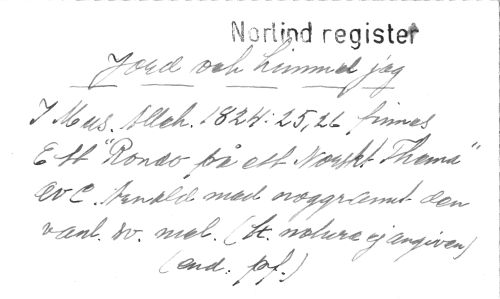 Norlind register
Jord och himmel jag
I Mus. Alleh. 1824: 25, 26 finnes
Ett "Rondo på ett Norskt Thema"
av C. Arnold med noggrannt den
vanl. sv. mel. (tt. notera ej angiven)
(end. pf.)